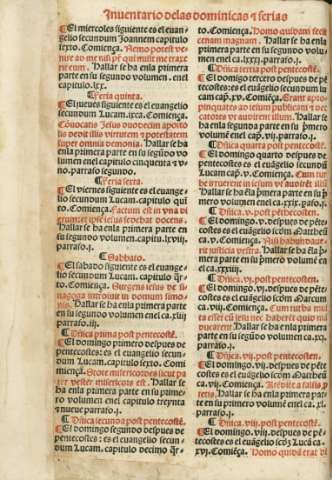 Inuentario de las dominicas ⁊ ferias
¶El miercoles siguiente es el euan-
gelio secundum Joannem capitulo
sexto. Comiença. Nemo potest ve-
nire ad me nisi pater qui misit me traxe
rit eum. Hallar se ha enla primera
parte en su segundo volumen. enel
capitulo.lxx.
¶Feria quinta.
¶El jueues siguiente es el euangelio
secundum Lucam. Comiença.
Hallar se ha
enla primera parte en su segūdo vo-
lumen enel capitulo cinquenta y v-
no. parrafo segundo.
¶Feria sexta.
¶El viernes siguiente es el euange-
lio secundum Lucam. capitulo quī-
to. Comiença. Factum est in vna di-
erum et ipse iesus sedebat docens.
Hallar se ha enla primera parte en
su segundo volumen. capitulo.lxviij.
parrafo.j.
¶Sabbato.
¶El sabado siguiente es el euange-
lio secundum Lucam. capitulo q̄r-
to. Comiença. Surgens iesus de si-
nagoga introiuit in domum simo-
nis. Hallar se ha enla primera parte
en su segundo volumen enel ca.xlij
parrafo.iij.
¶Dñica prima post pentecostē.
¶El domingo primero despues de
pentecostes: es el euangelio secun-
dum Lucam. capitulo sexto. Comi-
ença. Estote misericordes sicut pa-
ter vester misericors est. Hallar se
ha enla primera parte en su primero
volumen enel capitulo treynta
y nueue parrafo.j.
¶Dñica secunda post pentecostē.
¶El domingo segundo despues de
pentecostes: es el euangelio secun-
dum Lucam. capitulo decimo q̄r-
to. Comiença. Homo quidam fecit
cenam magnam. Hallar se ha enla
primera parte en su segundo volumē
¶Dñica tertia post pentecostē.
¶El domingo tercero despues de pē-
tecostes: es el euangelio secundum
Lucam. Comiença. Erant apro-
pinquantes ad iesum publicani ⁊ pec-
catores vt audirent illum. Hallar se
ha enla segunda parte en su
volumē enel cap. parrafo.j.
¶Dñica quarta post pentecostē.
¶El domingo quarto despues de
pentecostes es el euāgelio secundū
Lucam. cap.v. Comiença. Cum tur-
be irruerent in iesum vt audirēt
Hallar se ha enla primera parte en su
primero volumē enel ca. parrafo.j.
¶Dñica.v. post pentecostes.
¶El domingo.v. despues de pēte-
costes es el euāgelio scōm Mattheū.
ca.v. Comiença. Nisi habundaue-
rit iusticia vestra. Hallar se ha enla
primera parte en su primero volumē
en el ca.xxxiij.
¶Dñica.vj. post pentecostes.
¶El domingo.vj. despues de pēte-
costes es el euāgelio scōm Marcum
ca.viij. Comiença. Cum turba mul-
ta esset cū iesu nec haberēt quid mā-
ducarent. Hallar se ha enla primera
parte en su segundo volumē enel ca.
parrafo.j.
¶Dñica.vij. post pentecosten.
¶El domingo.vij. despues de pēte-
costes es el euāgelio scōm Mattheū
ca.vij. Comiença. Attēdite a falsis p̄
phetis. Hallar se ha enla primera parte
en su primero volumē enel ca.xl.
parrafo.j.
¶Dñica.viij. post pentecostē.
¶El domingo.viij. despues de pē-
tecostes es el euāgelio scōm Lucā ca.
xvj. Comiēça. Homo quidā erat di